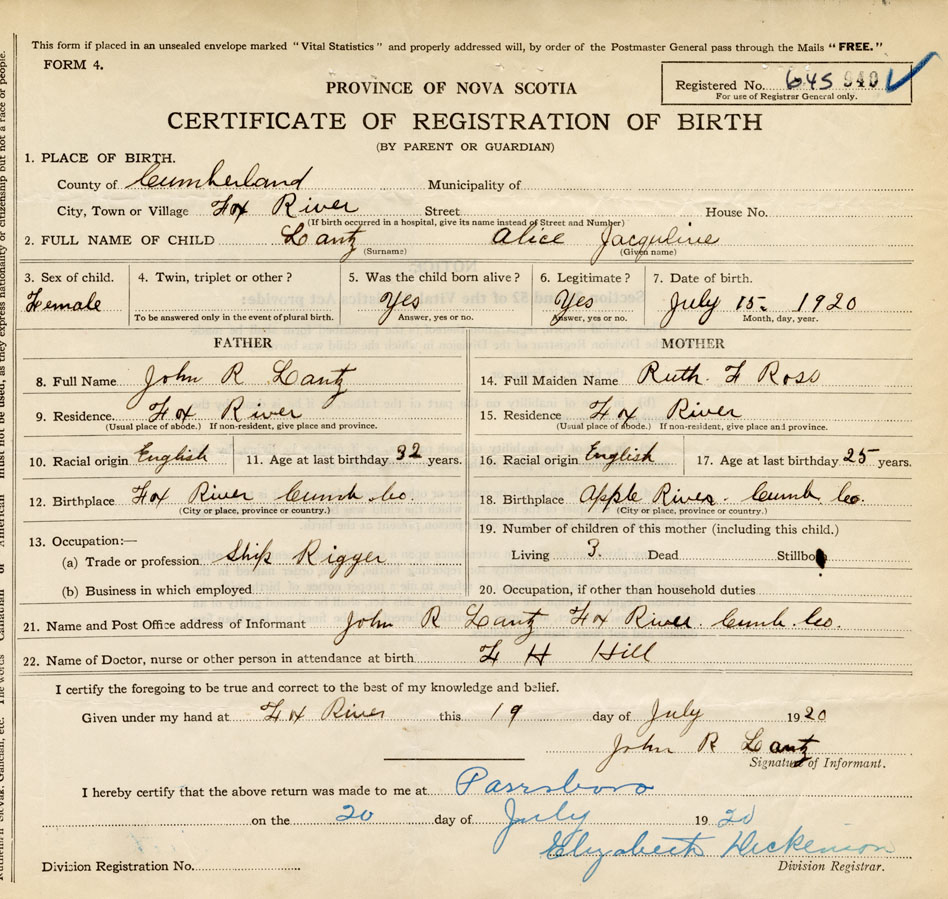 This form if placed in an unsealed envelope marked "Vital Statistics" and properly addressed will, by order of the Postmaster General pass through the Mails "FREE."
FORM 4.
Registered No. 645 940
For use of Registrar General only.
PROVINCE OF NOVA SCOTIA
CERTIFICATE OF REGISTRATION OF BIRTH
(BY PARENT OR GUARDIAN)
1. PLACE OF BIRTH.
County of Cumberland Municipality of
City, Town or Village Fox River Street House No.
(If birth occurred in a hospital, give its name instead of Street and Number)
2. FULL NAME OF CHILD Lantz Alice Jacquline
(Surname) (Given name)
3. Sex of child. 4. Twin, triplet or other? 5. Was the child born alive? 6. Legitimate? 7. Date of birth.
Female Yes Yes July 15 1920
To be answered only in the event of plural birth. Answer, yes or no. Answer, yes or no. Month, day, year.
FATHER MOTHER
8. Full Name John R Lantz 14. Full Maiden Name Ruth F Ross
9. Residence Fox River 15. Residence Fox River
(Usual place of abode.) If non-resident, give place and province. (Usual place of abode.) If non-resident, give place and province.
10. Racial origin English 11. Age at last birthday 32 years. 16. Racial origin English 17. Age at last birthday 25 years.
12. Birthplace Fox River Cumb. Co. 18. Birthplace Apple River. Cumb Co.
(City or place, province or country.) (City or place, province or country.)
13. Occupation:— 19. Number of children of this mother (including this child.)
(a) Trade or profession Ship Rigger Living 3. Dead Stillborn
(b) Business in which employed 20. Occupation, if other than household duties
21. Name and Post Office address of Informant John R Lantz Fox River. Cumb. Co.
22. Name of Doctor, nurse or other person in attendance at birth F H Hill
I certify the foregoing to be true and correct to the best of my knowledge and belief.
Given under my hand at Fox River this 19 day of July 1920
John R Lantz
Signature of Informant.
I hereby certify that the above return was made to me at Parrsboro
on the 20 day of July 1920
Elizabeth Dickenson
Division Registration No. Division Registrar.